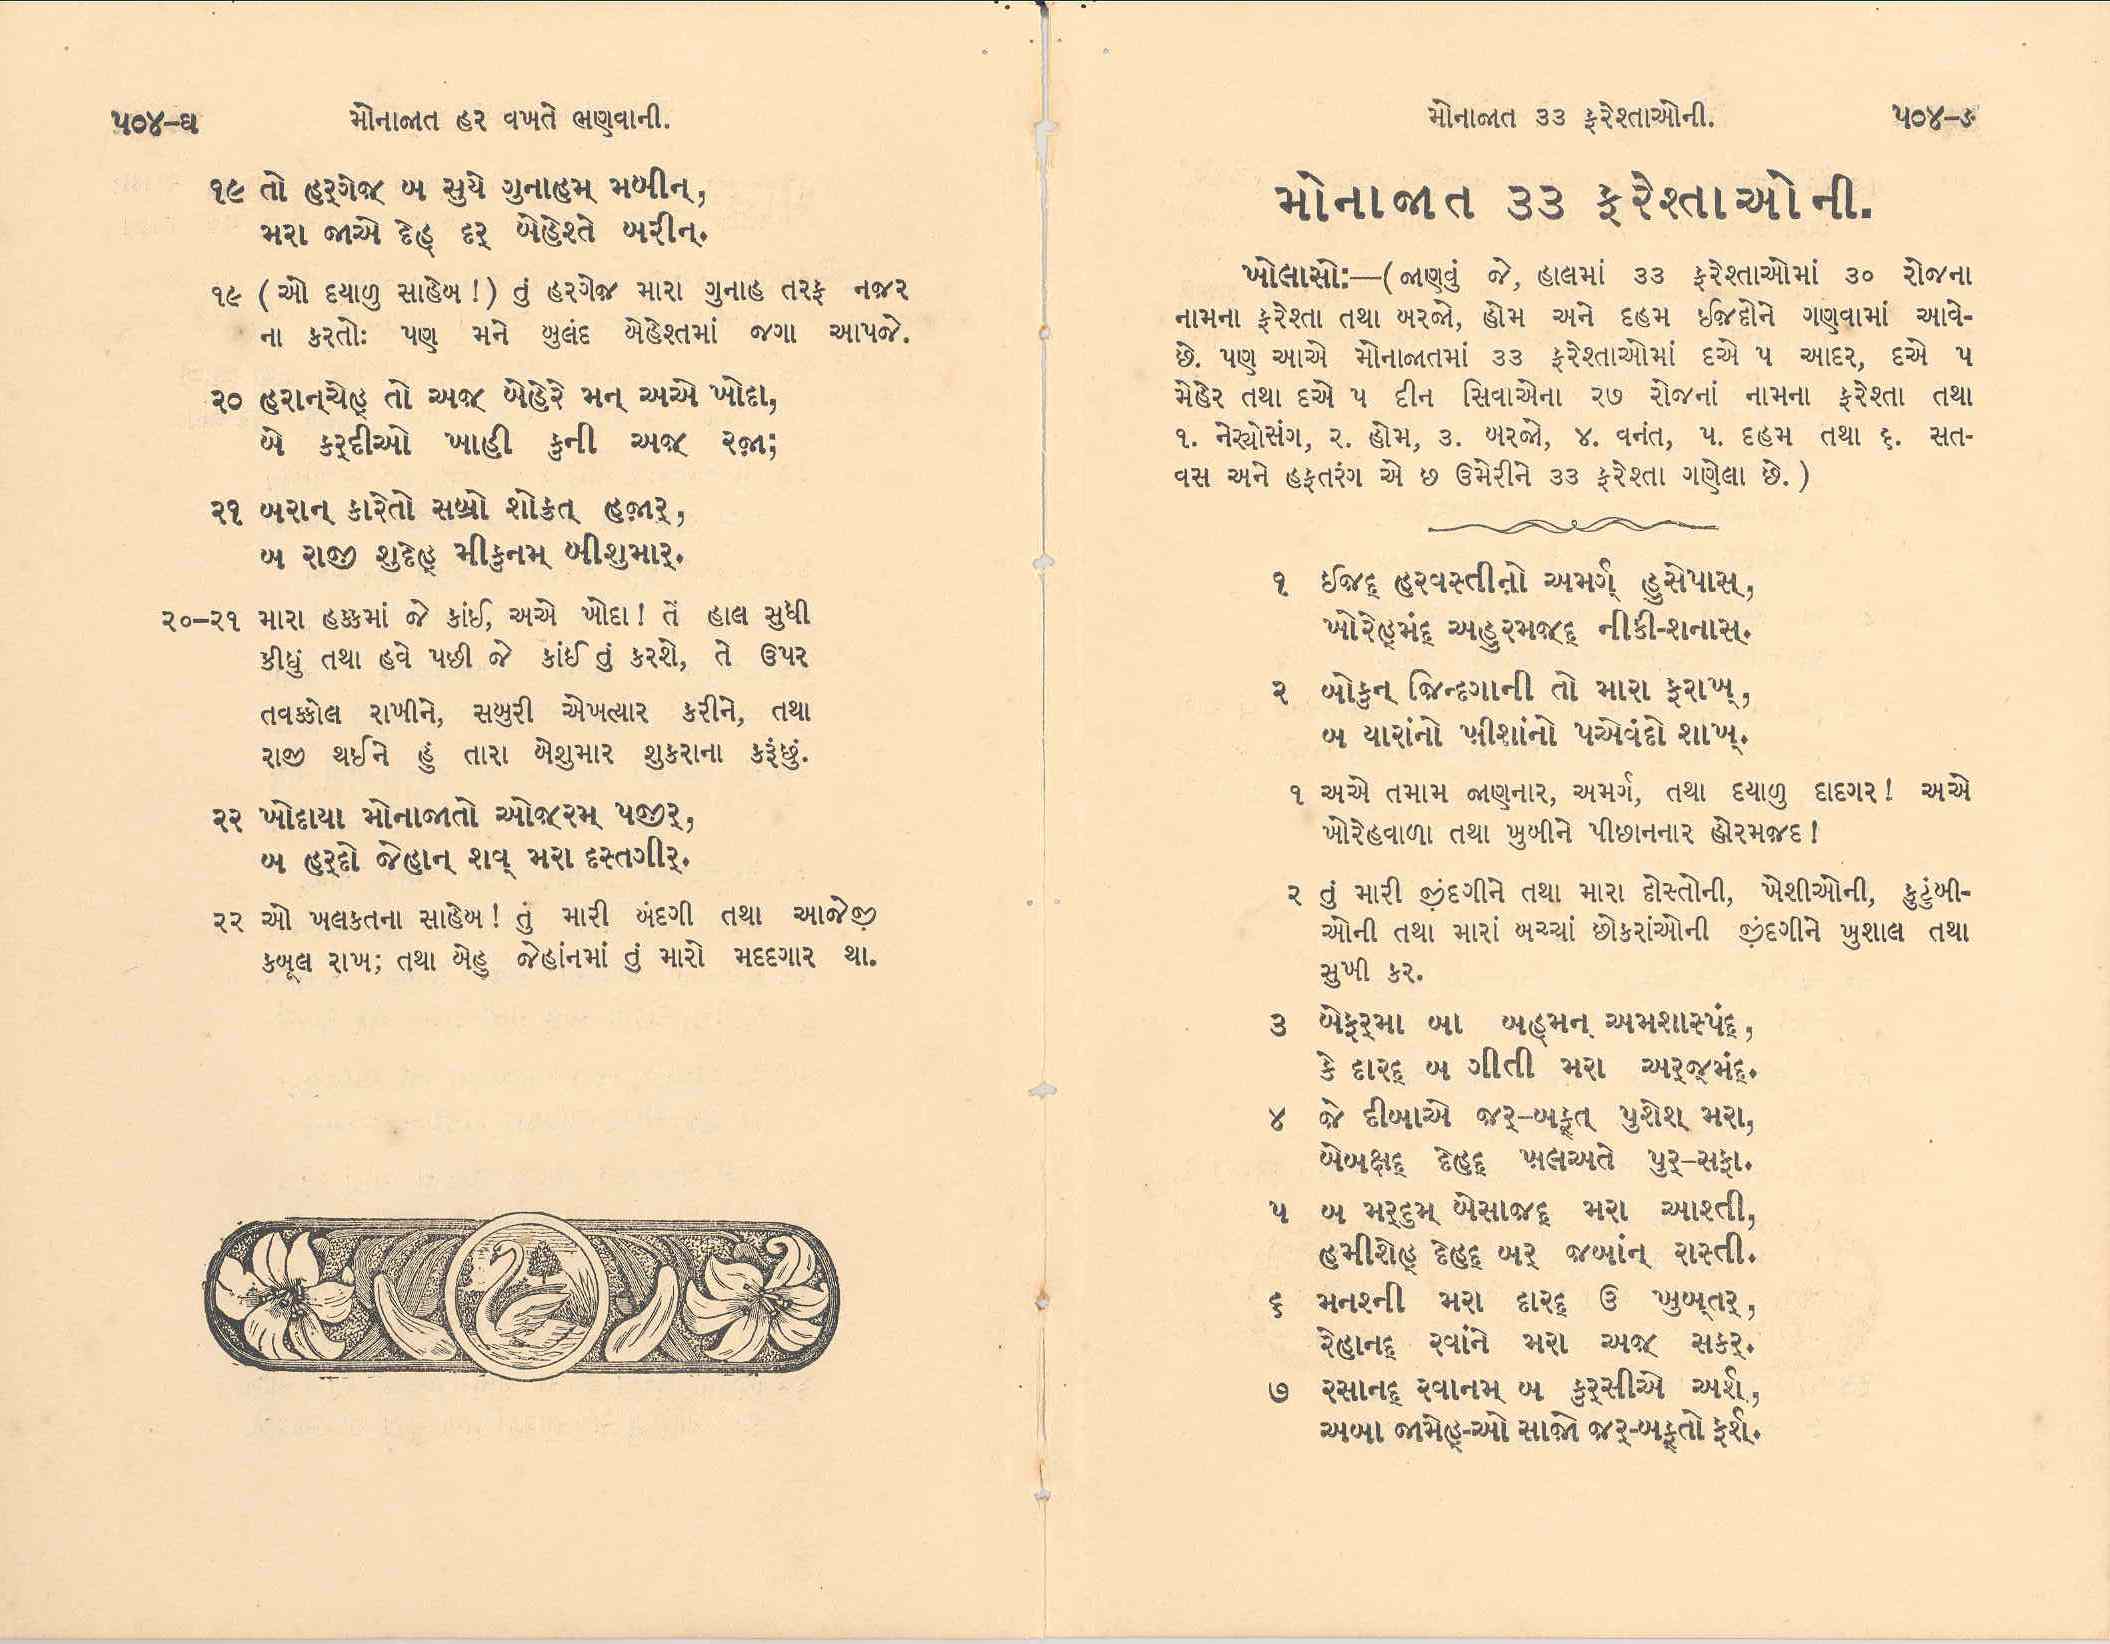 ૫૦૪-ઘ
મોનાજાત હર વખતે ભણવાની.
૧૯ તો હર્ગેજ્ બ સુયે ગુનાહમ્ મબીન્,
મરા જાએ દેહ્ દર્ બેહેશ્તે બરીન્.
૧૯ (ઓ દયાળુ સાહેબ!) તું હરગેજ મારા ગુનાહ તરફ નજર
ના કરતો: પણ મને બુલંદ બેહેશ્તમાં જગા આપજે.
૨૦ હરાન્ચેહ્ તો અજ્ બેહેરે મન્ અએ ખોદા,
બે કર્દીઓ ખાહી કુની અજ્ રજા;
૨૧ બરાન્ કારેતો સબ્રો શોક્રત્ હજાર્,
બ રાજી શુદેહ્ મીકુનમ્ બીશુમાર્.
૨૦-૨૧ મારા હક્કમાં જે કાંઈ, અએ ખોદા! તેં હાલ સુધી
કીધું તથા હવે પછી જે કાંઈ તું કરશે, તે ઉપર
તવક્કોલ રાખીને, સબુરી એખત્યાર કરીને, તથા
રાજી થઈને હું તારા બેશુમાર શુકરાના કરૂંછું.
૨૨ ખોદાયા મોનાજાતો ઓજ્રમ્ પજીર્,
બ હર્દો જેહાન્ શવ્ મરા દસ્તગીર્.
૨૨ ઓ ખલકતના સાહેબ! તું મારી બંદગી તથા આજેજી
કબૂલ રાખ; તથા બેહુ જેહાંનમાં તું મારો મદદગાર થા.
મોનાજાત ૩૩ ફરેશ્તાઓની.
૫૦૪-ઙ
મોનાજાત ૩૩ ફરેશ્તાઓની.
ખોલાસો:—(જાણવું જે, હાલમાં ૩૩ ફરેશ્તાઓમાં ૩૦ રોજના
નામના ફરેશ્તા તથા બરજો, હોમ અને દહમ ઈજદોને ગણવામાં આવે-
છે. પણ આએ મોનાજાતમાં ૩૩ ફરેશ્તાઓમાં દએ પ આદર, દએ પ
મેહેર તથા દએ પ દીન સિવાએના ૨૭ રોજનાં નામના ફરેશ્તા તથા
૧. નેર્યોસંગ, ૨. હોમ, ૩. બરજો, ૪. વનંત, ૫. દહમ તથા ૬. સત-
વસ અને હફતરંગ એ છ ઉમેરીને ૩૩ ફરેશ્તા ગણેલા છે.)
૧ ઈજદ્ હરવસ્તીનો અમર્ગ્ હુસેપાસ્,
ખોરેહ્મંદ્ અહુરમજ્દ્ નીકી-શનાસ્.
૨ બોકુન્ જિન્દગાની તો મારા ફરાખ્,
બ યારાંનો ખીશાંનો પએવંદો શાખ્.
૧ અએ તમામ જાણનાર, અમર્ગ, તથા દયાળુ દાદગર! અએ
ખોરેહવાળા તથા ખુબીને પીછાનનાર હોરમજદ!
૨ તું મારી જીંદગીને તથા મારા દોસ્તોની, ખેશીઓની, કુટુંબી-
ઓની તથા મારાં બચ્ચાં છોકરાંઓની જીંદગીને ખુશાલ તથા
સુખી કર.
૩ બેફર્મા બા બહ્મન્ અમશાસ્પંદ્,
કે દારદ્ બ ગીતી મરા અર્જ્મંદ્.
૪ જે દીબાએ જર્-બફ્ત્ પુશેશ્ મરા,
બેબક્ષદ્ દેહદ્ ખલઅતે પુર્-સફા.
૫ બ મર્દુમ્ બેસાજદ્ મરા આશ્તી,
હમીશેહ્ દેહદ્ બર્ જબાંન્ રાસ્તી.
૬ મનશ્ની મરા દારદ્ ઉ ખુબ્તર્,
રેહાનદ્ રવાંને મરા અજ્ સકર્.
૭ રસાનદ્ રવાનમ્ બ કુર્સીએ અર્શ્,
અબા જામેહ્-ઓ સાજો જર્-બફ્તો ફર્શ્.